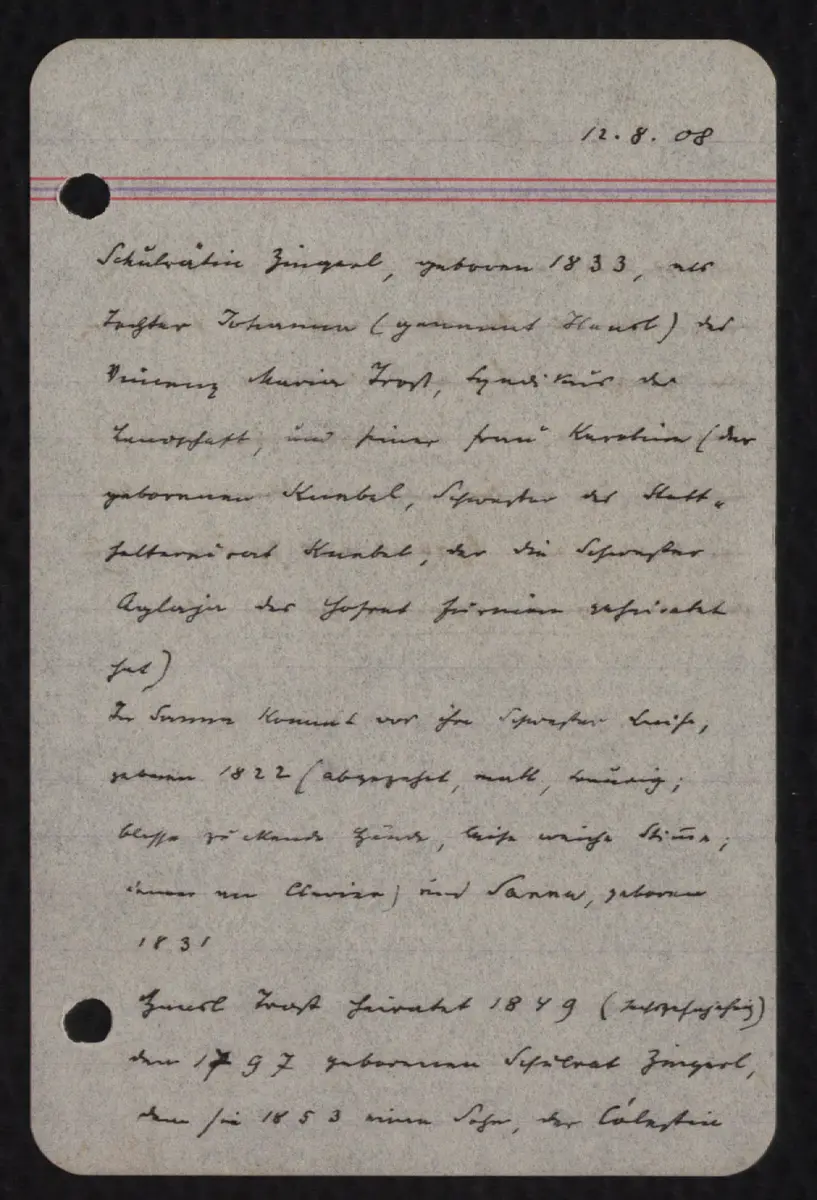 12. 8. 08
Schulrätin Zingerl, geboren 1833, als
Tochter Johanna (genannt Hanerl) des
Vincenz Maria Trost, Syndikus der
Landschaft, und seiner Frau Karoline (der
geborenen Knebel, Schwester des Statt-
haltereirat Knebel, der die Schwester
Aglaja des Hofrat Furnian geheiratet
hat)
In Sanna kommt vor ihre Schwester Luise,
geboren 1822 (abgezehrt, matt, traurig;
blasse zuckende Hände, leise weiche Stimme;
immer am Clavier) und Sanna, geboren
1831
Trost heiratet 1849 (sechzehnjährig)
den 1797 geborenen Schulrat Zingerl,
dem sie 1853 einen Sohn, der Cölestin